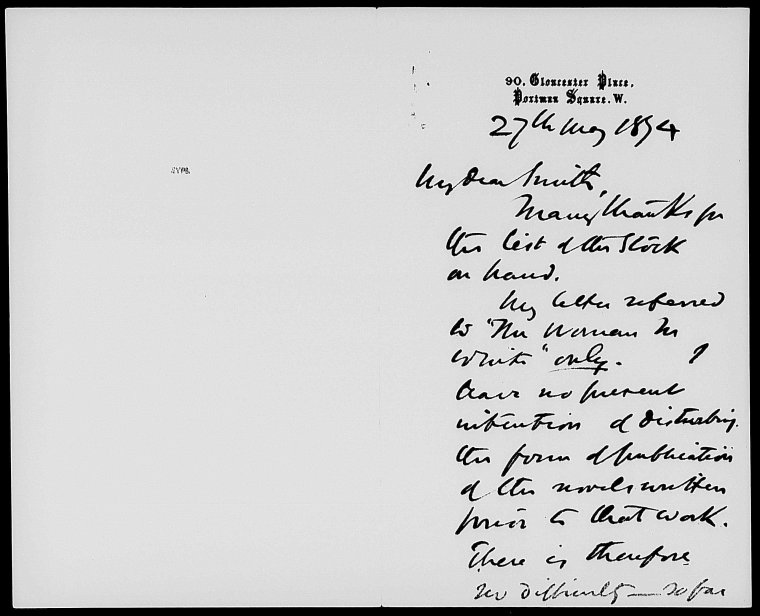 90, Gloucester Place,
Portman Square. W.
27th May 1874
My dear Smith,
Many thanks for
the list of the Stock
on hand.
My letter referred
to "The Woman In
White" only. I
have no present
intention of disturbing
the form of publication
of the novels written
prior to that work.
There is therefore
no difficulty — so far